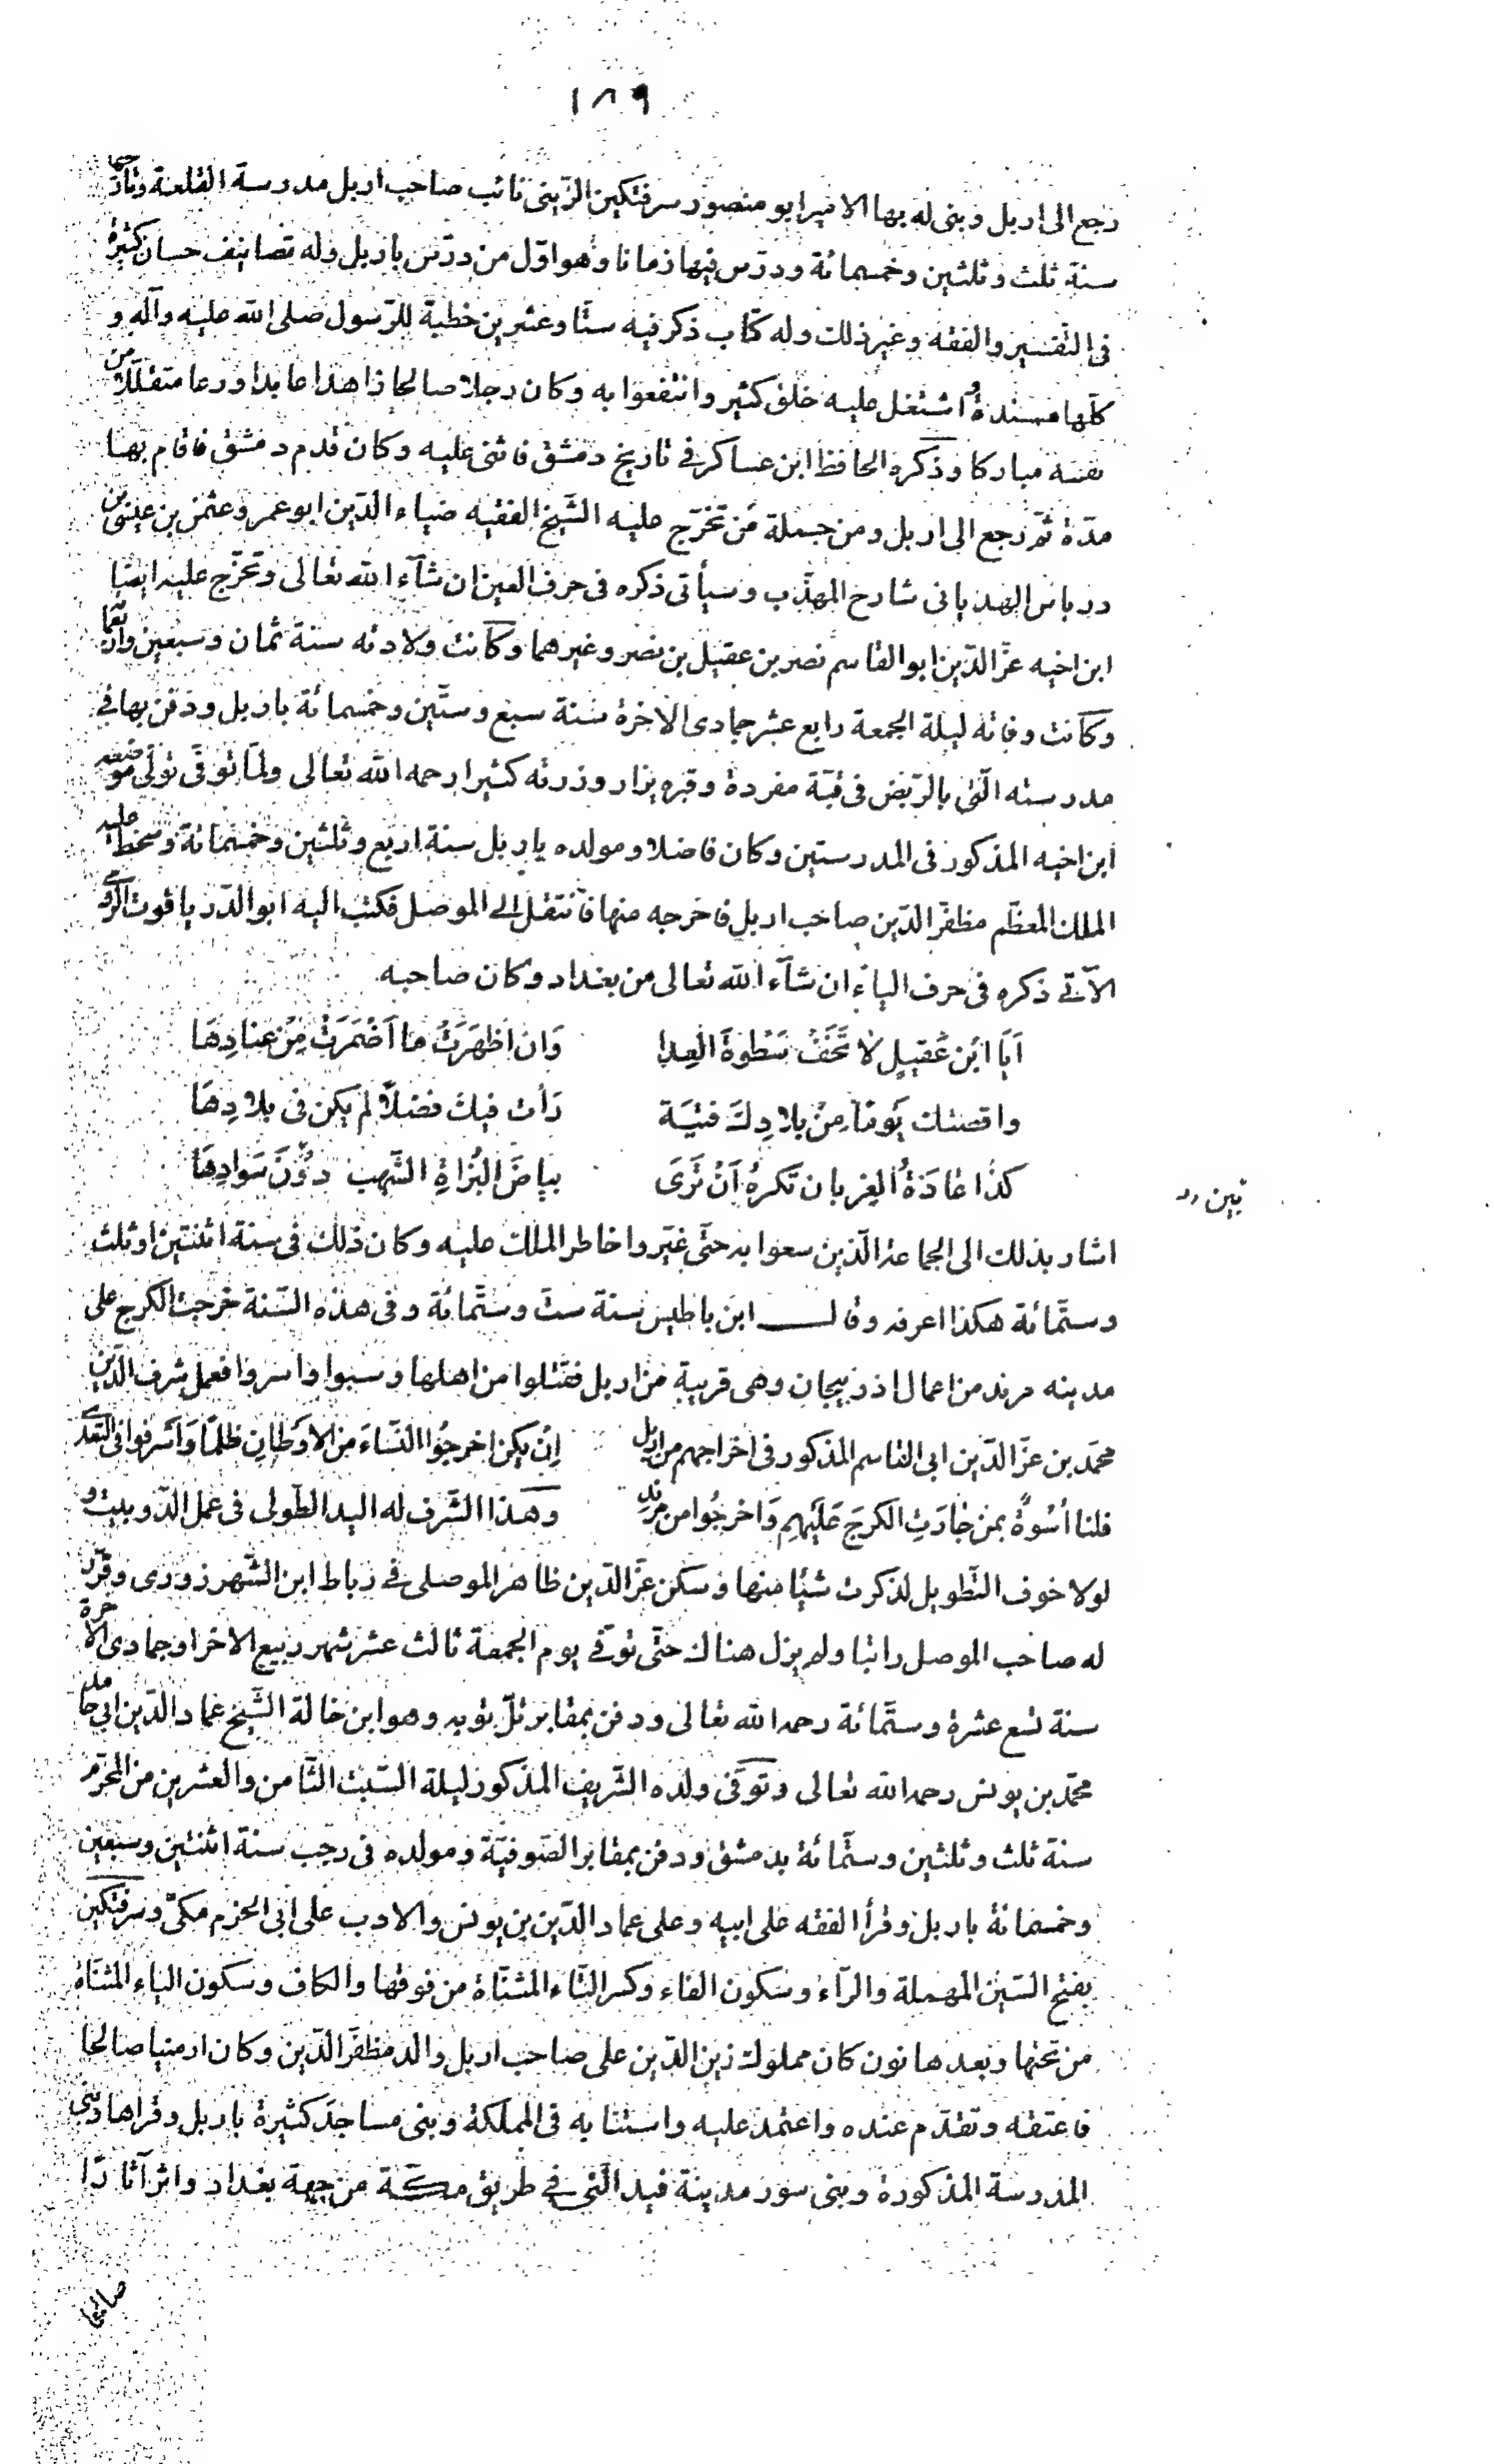 ١٨٩
رجع الى اربل وبنى له بها الامير ابو منصور سرفتكين الزّينى نائب صاحب اربل مدرسة القلعة وتاريخها
سنة ثلث وثلثين وخمسمائة ودرّس فيها زمانا وهو اوّل من درّس باربل وله تصانيف حسان كثيرة
فى التّفسير والفقه وغير ذلك وله كتاب ذكر فيه ستّا وعشرين خطبة للرّسول صلى الله عليه وآله و
كلّها مسندة واشتغل عليه خلق كثير وانتفعوا به وكان رجلا صالحا زاهدا عابدا ورعا متقلّلا من
نفسه مباركا وذكره الحافظ ابن عساكر فى تاريخ دمشق فاثنى عليه وكان قدم دمشق فاقام بها
مدّة ثمّ رجع الى اربل ومن جملة من تخرّج عليه الشّيخ الفقيه ضياء الدّين ابو عمرو عثمن بن عيسى بن
درباس الهذبانى شارح المهذّب وسيأتى ذكره فى حرف العين ان شآء الله تعالى وتخرّج عليه ايضا
ابن اخيه عزّ الدّين ابو القاسم نصر بن عقيل بن نصر وغيرهما وكانت ولادته سنة ثمان وسبعين واربعمائة
وكانت وفاته ليلة الجمعة رابع عشر جمادى الاخرة سنة سبع وستّين وخمسمائة باربل ودفن بها فى
مدرسته الّتى بالرّبض فى قبّة مفردة وقبره يزار وزرته كثيرا رحمه الله تعالى ولمّا توفّى تولّى موضعه
ابن اخيه المذكور فى المدرستين وكان فاضلا ومولده باربل سنة اربع وثلثين وخمسمائة وسخط عليه
الملك المعظّم مظفّر الدّين صاحب اربل فاخرجه منها فانتقل الى الموصل فكتب اليه ابو الدّر ياقوت الرّومى
الآتى ذكره فى حرف الياء ان شآء الله تعالى من بغداد وكان صاحبه
اَيَا ابْن عَقيلٍ لا تَخَفْ سَطْوةَ العِدا وَان اَظهَرَتْ ما اَضْمَرَتْ مِنْ عِنادِهَا
واقصتك يَومًا مِنْ بلادِكَ فتيَة رَأت فيك فضلًا لم يكن فى بلادِهَا
كذا عَادَةُ الغِربان تكرهُ اَنْ تَرَى بياضَ البُزاةِ الشّهب دوُنَ سَوادِهَا
اشار بذلك الى الجماعة الّذين سعوا به حتّى غيّروا خاطر الملك عليه وكان ذلك فى سنة اثنتين او ثلث
وستّمائة هكذا اعرفه وقال ابن باطيس سنة ستّ وستّمائة وفى هذه السّنة خرجت الكرج على
مدينه مرند من اعمال اذربيجان وهى قريبة من اربل فقتلوا من اهلها وسبوا واسروا فعمل شرف الدّين
محمّد بن عزّ الدّين ابى القاسم المذكور فى اخراجهم من اربل اِنْ يكن اخرجُوا النّسَاءَ مِن الاَوطانِ ظلمًا وَاَسْرفوا فى التّعدى
فلنا اُسْوةٌ بمن جارَتِ الكرجَ عَلَيهم وَاخرجُوا من مرندِ وهذا الشّرف له اليد الطّولى فى عمل الدّوبيت و
لولا خوف التّطويل لذكرت شيئا منها وسكن عزّ الدّين ظاهر الموصلى فى رباط ابن الشّهرزورى وقرّر
له صاحب الموصل راتبا ولم يزل هناك حتّى توفّى يوم الجمعة ثالث عشر شهر ربيع الاخر او جمادى الاخرة
سنة تسع عشرة وستّمائة رحمه الله تعالى ودفن بمقابر تلّ توبه وهو ابن خالة الشّيخ عماد الدّين ابى حامد
محمّد بن يونس رحمه الله تعالى وتوفّى ولده الشّريف المذكور ليلة السّبت الثّامن والعشرين من المحرّم
سنة ثلث وثلثين وستّمائة بدمشق ودفن بمقابر الصّوفيّة ومولده فى رجب سنة اثنتين وسبعين
وخمسمائة باربل وقرأ الفقه على ابيه وعلى عماد الدّين بن يونس والادب على ابى الحزم مكّى وسرفتكين
بفتح السّين المهملة والرّاء وسكون الفاء وكسر التّاء المثنّاة من فوقها والكاف وسكون الياء المثنّاة
من تحتها وبعدها نون كان مملوك زين الدّين على صاحب اربل والد مظفّر الدّين وكان ارمنيا صالحا
فاعتقه وتقدّم عنده واعتمد عليه واستنابه فى المملكة وبنى مساجد كثيرة باربل وقراها وبنى
المدرسة المذكورة وبنى سور مدينة فيد الّتى فى طريق مكّة من جهة بغداد واثر آثارًا